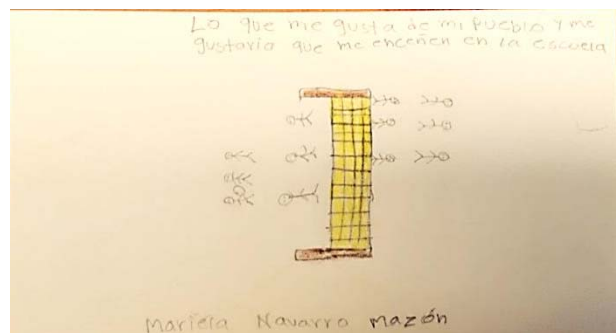 Lo que me gusta de mi pueblo y me
gustaria que me enceñen en la escuela
Mariela Navarro Mazón